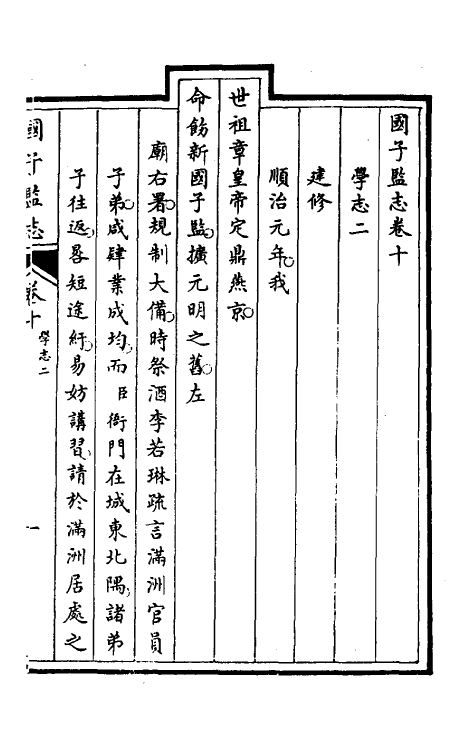 國子監志卷十
學志二
建修
順治元年我
世祖章皇帝定鼎燕京
命飭新國子監擴元明之舊左
廟右署規制大備時祭酒李若琳疏言滿洲官員
子弟咸肄業成均而臣衙門在城東北隅諸弟
子往返晷短途紆易妨講習請於滿洲居處之
國子監志 卷十 學志二 一